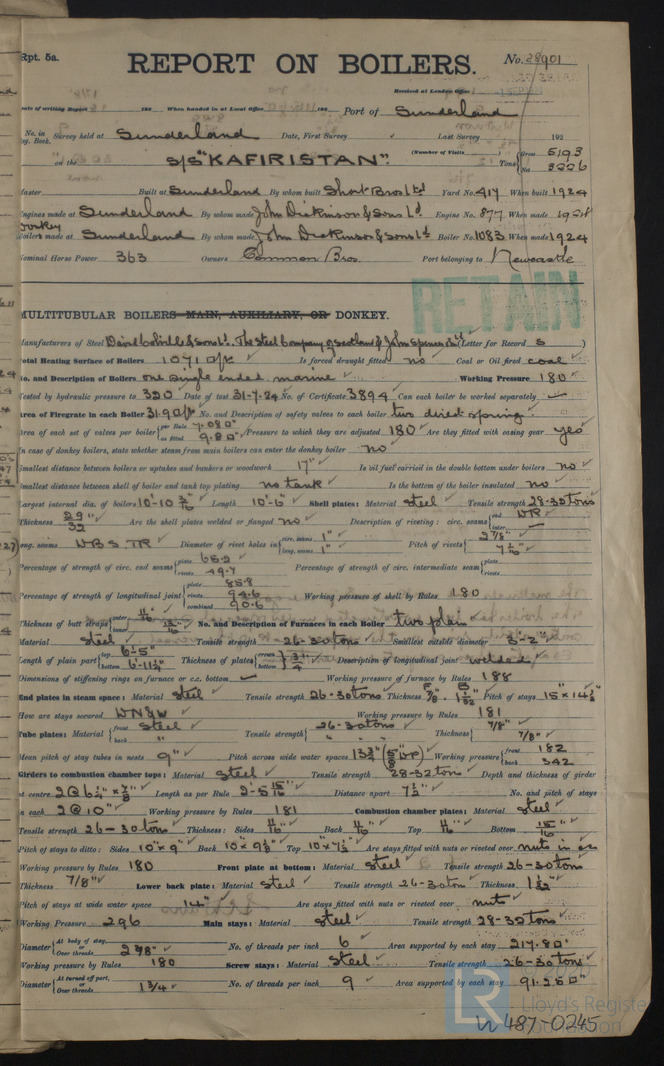 Rpt. 5a.
REPORT ON BOILERS.
No. 28901
Received at London Office
Date of writing Report 192 When handed in at Local Office 192 Port of Sunderland
No. in Reg. Book. Survey held at Sunderland Date, First Survey Last Survey 192
on the S/S "KAFIRISTAN". (Number of Visits Tons Gross 5193 Net 3226
Master Built at Sunderland By whom built Short Bros Ltd Yard No. 417 When built 1924
Engines made at Sunderland By whom made John Dickinson & Sons Ld Engine No. 877 When made 1924
Donkey Boilers made at Sunderland By whom made John Dickinson & Sons Ld Boiler No. 1083 When made 1924
Nominal Horse Power 363 Owners Common Bros. Port belonging to Newcastle
RETAIN
MULTITUBULAR BOILERS MAIN, AUXILIARY, OR DONKEY.
Manufacturers of Steel David Colville & Sons Ld. The Steel Company of Scotland & John Spencer & (Letter for Record S )
Total Heating Surface of Boilers 1071 Is forced draught fitted no Coal or Oil fired coal
No. and Description of Boilers one single ended marine Working Pressure 180
Tested by hydraulic pressure to 320 Date of test 31-7-24 No. of Certificate 3894 Can each boiler be worked separately
Area of Firegrate in each Boiler 31.9 No. and Description of safety valves to each boiler two direct spring
Area of each set of valves per boiler per Rule 7.080 as fitted 9.82 Pressure to which they are adjusted 180 Are they fitted with easing gear yes
In case of donkey boilers, state whether steam from main boilers can enter the donkey boiler no
Smallest distance between boilers or uptakes and bunkers or woodwork 17" Is oil fuel carried in the double bottom under boilers no
Smallest distance between shell of boiler and tank top plating no tank Is the bottom of the boiler insulated no
Largest internal dia. of boilers 10'-10 3/16" Length 10'-6" Shell plates: Material Steel Tensile strength 28-32 tons
Thickness 29/32 Are the shell plates welded or flanged no Description of riveting: circ. seams end DR inter.
long. seams DBS TR Diameter of rivet holes in circ. seams 1" long. seams 1" Pitch of rivets 2 7/8" 7 1/16"
Percentage of strength of circ. end seams plate 65.2 rivets 49.7 Percentage of strength of circ. intermediate seam plate rivets
Percentage of strength of longitudinal joint plate 85.8 rivets 94.6 combined 90.6 Working pressure of shell by Rules 180
Thickness of butt straps outer 11/16" inner 13/16" No. and Description of Furnaces in each Boiler two plain
Material Steel Tensile strength 26-30 tons Smallest outside diameter 3'-2"
Length of plain part top 6'-5" bottom 6'-11 1/4" Thickness of plates crown bottom 3/4" Description of longitudinal joint welded
Dimensions of stiffening rings on furnace or c.c. bottom Working pressure of furnace by Rules 188
End plates in steam space: Material Steel Tensile strength 26-30 tons Thickness F 7/8" B 1 1/32" Pitch of stays 15" x 14 1/2"
How are stays secured DN&W Working pressure by Rules 181
Tube plates: Material front Steel back " Tensile strength 26-30 tons " Thickness 7/8" 7/8"
Mean pitch of stay tubes in nests 9" Pitch across wide water spaces 13 3/4" Working pressure front 182 back 342
Girders to combustion chamber tops: Material Steel Tensile strength 28-32 tons Depth and thickness of girder
at centre 2 @ 6 1/4" x 7/8" Length as per Rule 2-5 15/16" Distance apart 7 1/2" No. and pitch of stays
in each 2 @ 10" Working pressure by Rules 181 Combustion chamber plates: Material Steel
Tensile strength 26-30 tons Thickness: Sides 11/16" Back 11/16" Top 11/16" Bottom 15/16"
Pitch of stays to ditto: Sides 10" x 9" Back 10" x 9 1/8" Top 10" x 7 1/2" Are stays fitted with nuts or riveted over nuts in cc
Working pressure by Rules 180 Front plate at bottom: Material Steel Tensile strength 26-30 tons
Thickness 7/8" Lower back plate: Material Steel Tensile strength 26-30 tons Thickness 1 1/32"
Pitch of stays at wide water space 14" Are stays fitted with nuts or riveted over nuts
Working Pressure 296 Main stays: Material Steel Tensile strength 28-32 tons
Diameter At body of stay, or Over threads 2 7/8" No. of threads per inch 6 Area supported by each stay 217.8
Working pressure by Rules 180 Screw stays: Material Steel Tensile strength 26-30 tons
Diameter At turned off part, or Over threads 1 3/4" No. of threads per inch 9 Area supported by each stay 91.25
© 2020
LR
Lloyd's Register
Foundation
W487-0245